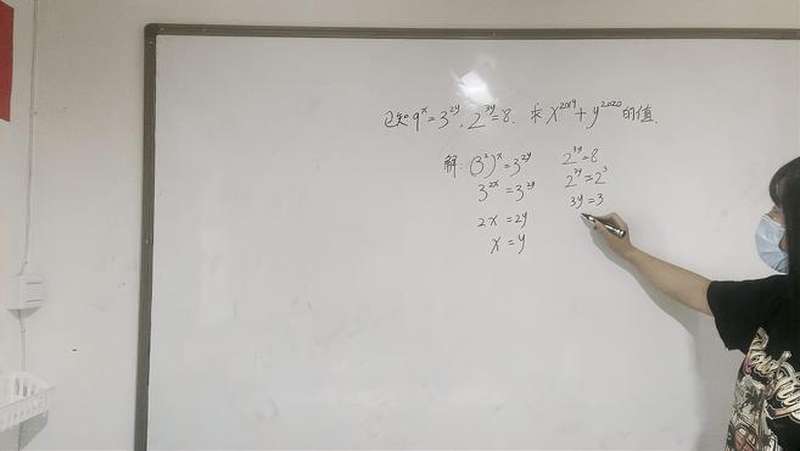 已知 9^x = 3^{2y}, 2^{3y} = 8. 求 x^{2019} + y^{2020} 的值.
解: (3^2)^x = 3^{2y}
3^{2x} = 3^{2y}
2x = 2y
x = y
2^{3y} = 8
2^{3y} = 2^3
3y = 3